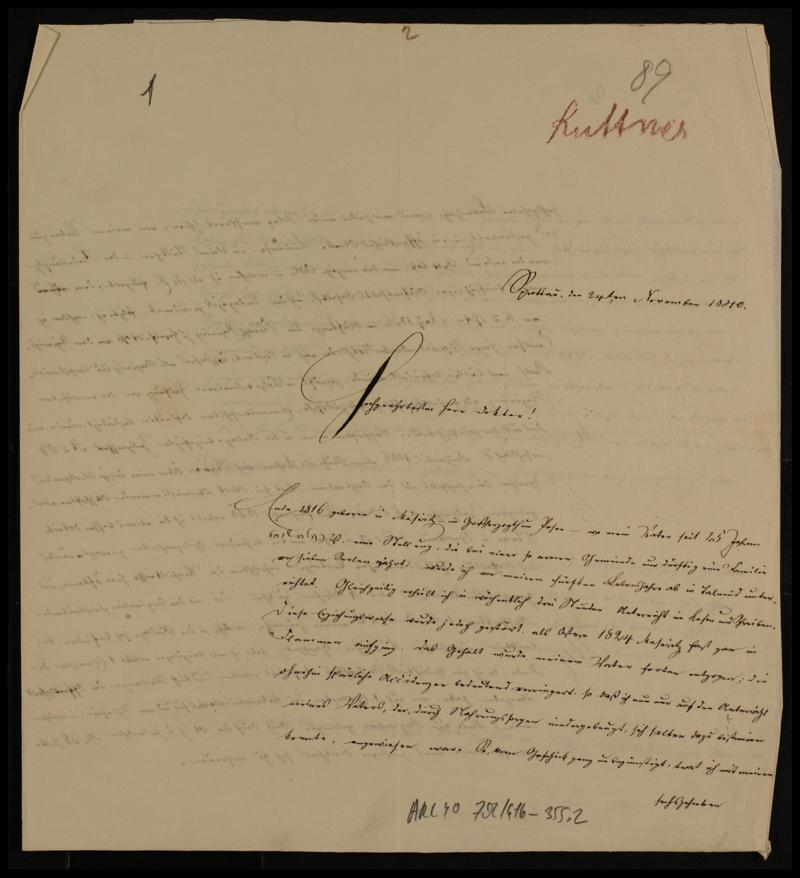 2
1
89
Kuttner
Sprottau, den 24ten November 1840.
Hochgeehrtester Herr Doktor!
Ende 1816 geboren in Meseritz – im Großherzogthum Posen – wo mein Vater seit 25 Jahren
ist – eine Stellung, die bei einer so armen Gemeinde nur dürftig eine Familie
von sieben Seelen nährt – wurde ich von meinem fünften Lebensjahre ab in Talmud unter-
richtet. Gleichzeitig erhielt ich in wöchentlich drei Stunden Unterricht in Lesen und Schreiben.
Diese Erziehungsweise wurde jedoch gestört, als Ostern 1824 Meseritz fast ganz in
Flammen aufging. Das Gehalt wurde meinem Vater fortan entzogen; die
ohnehin spärlichen Accidenzen bedeutend verringert, so daß ich nun nur auf den Unterricht
meines Vaters, der, durch Nahrungssorgen niedergebeugt, sich selten dazu bestimmen
konnte, angewiesen war. So, vom Geschick ganz unbegünstigt, trat ich mit meinem
sechszehnten
ARC 40 792/416-355.2